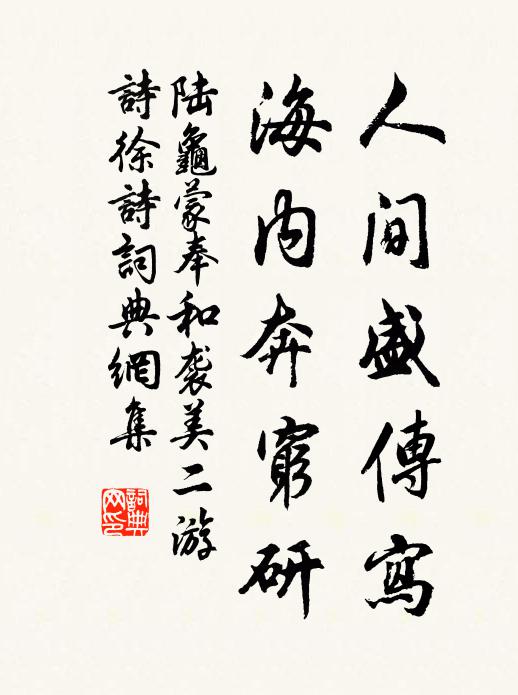 人間盛傳寫
海内奔窮研
陆龜蒙奉和袭美二游
詩徐詩詞典網集
詞典网印